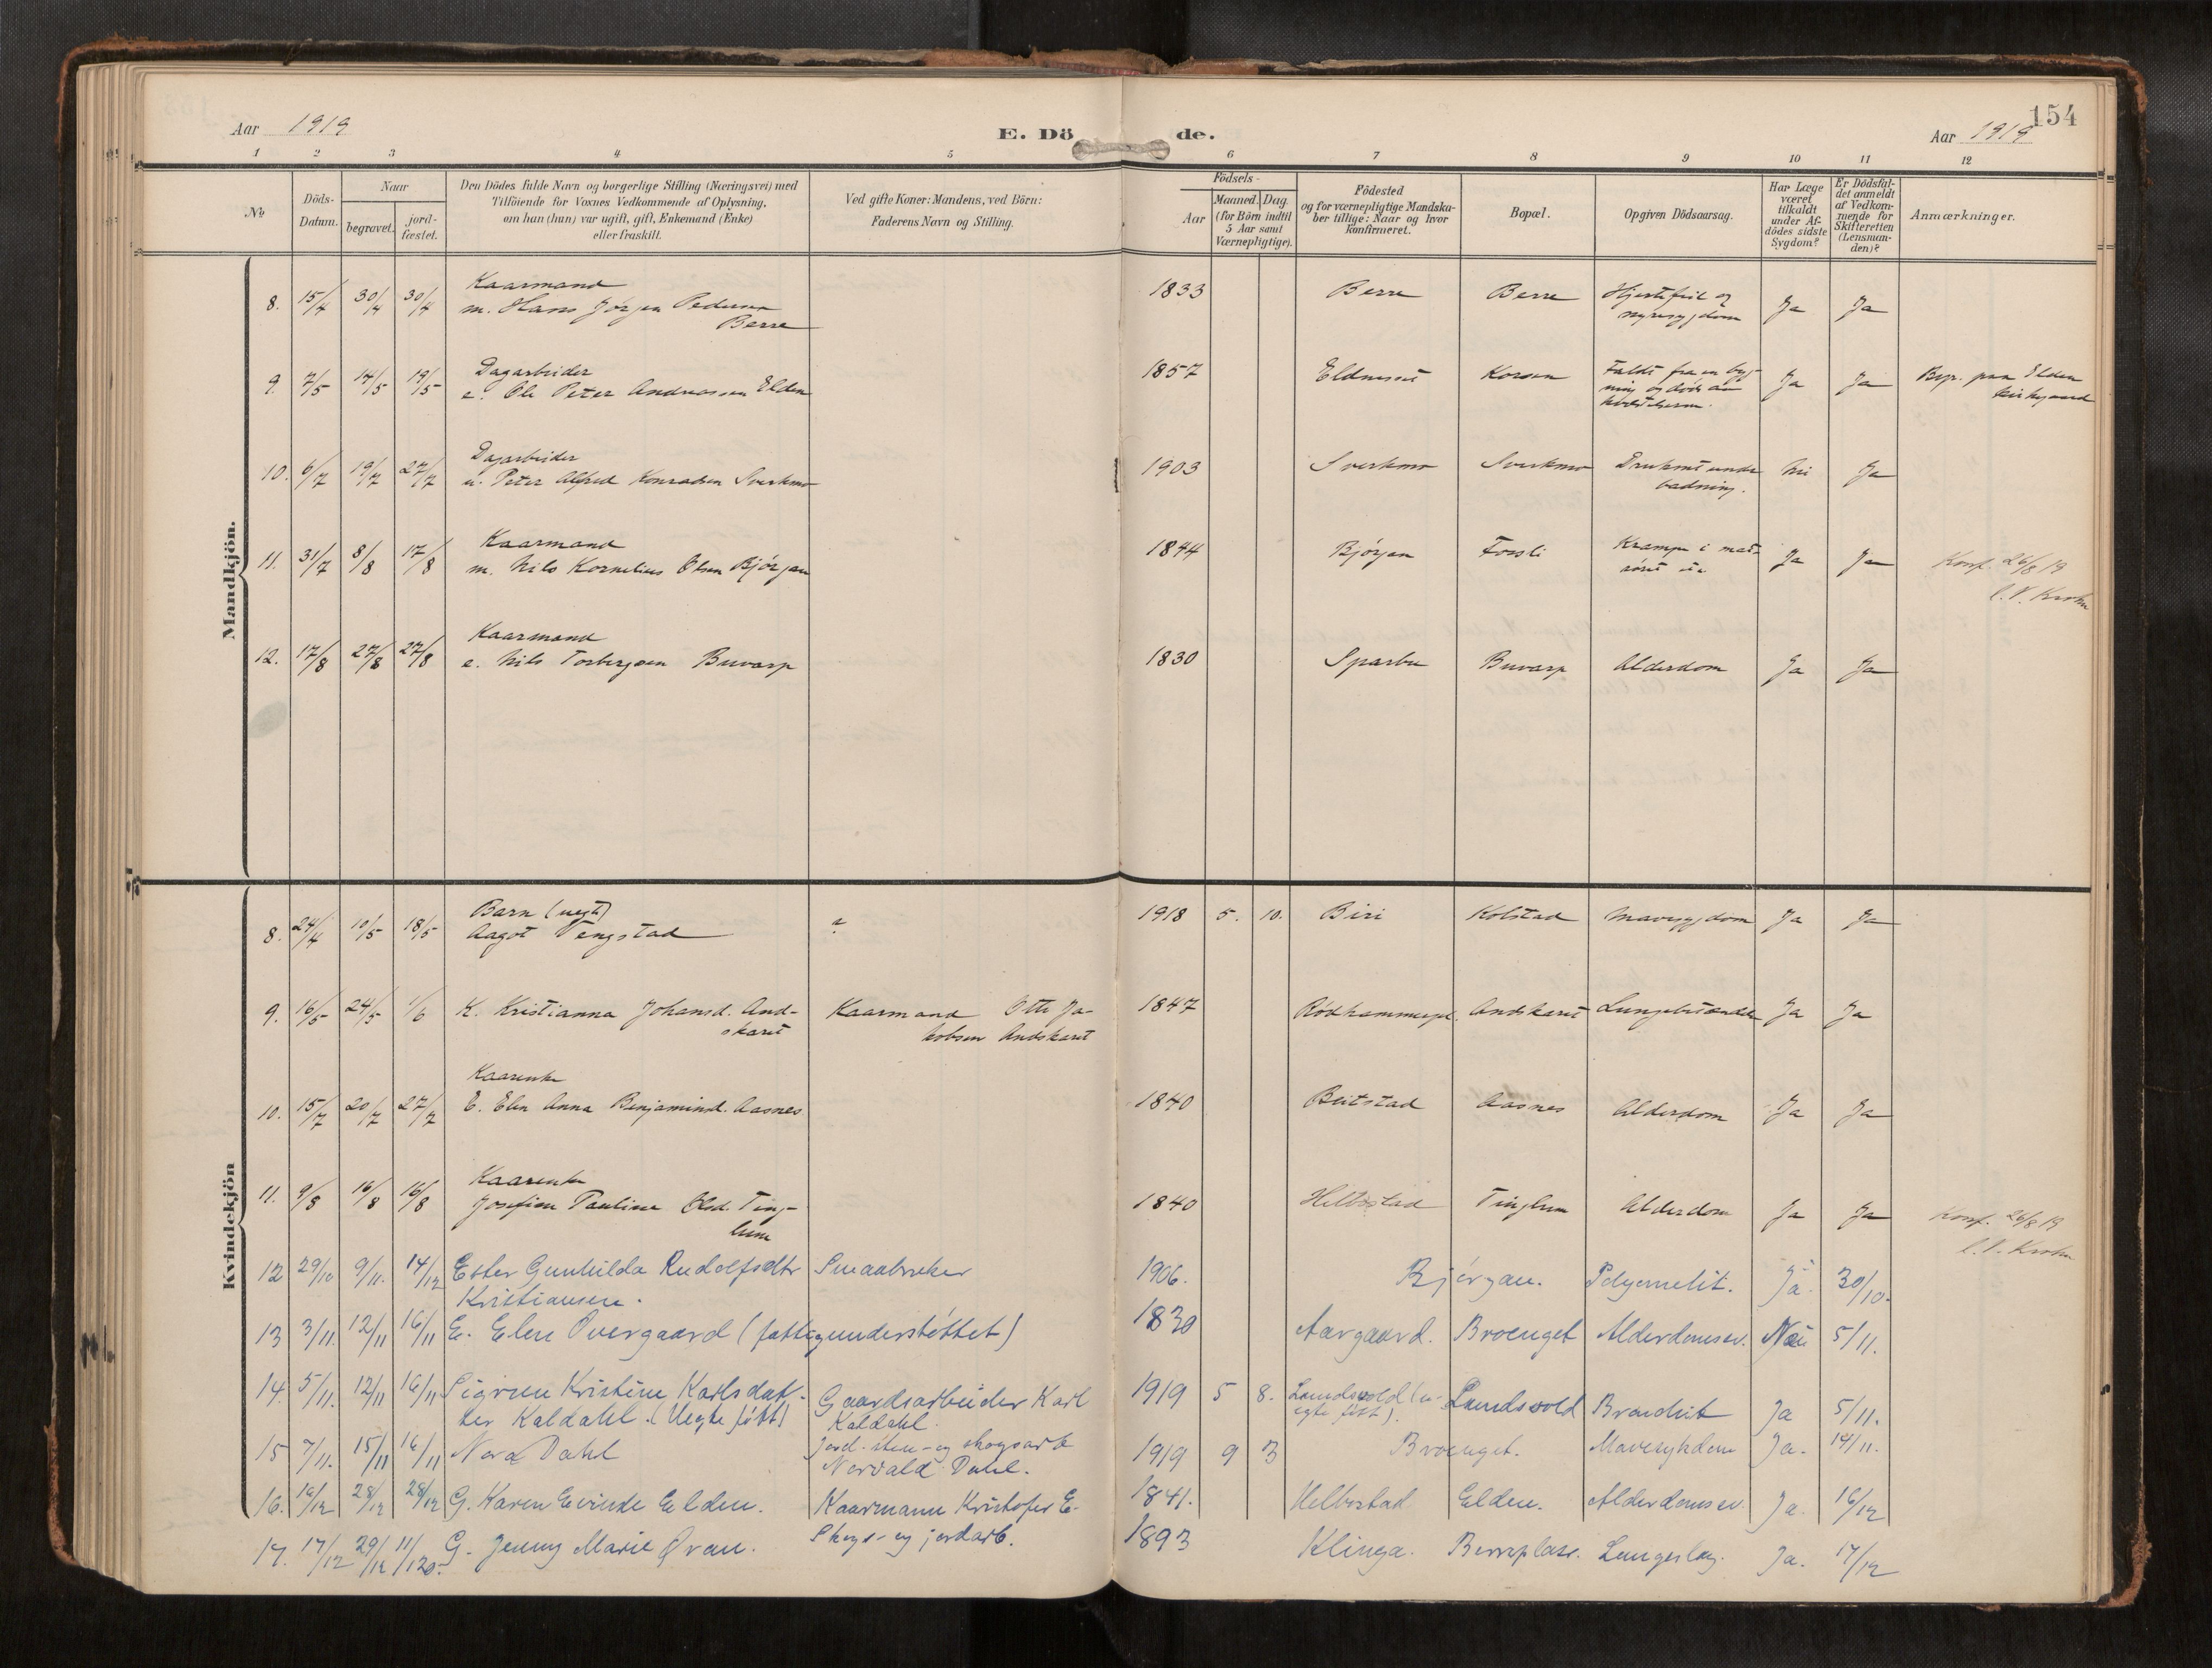 154
Aar 1919
E. Dö de.
Aar 1919
1 2 3 4 5 6 7 8 9 10 11 12
No
Döds-
Datum.
Naar
begravet.
jord-
fæstet.
Den Dödes fulde Navn og borgerlige Stilling (Næringsvei) med
Tilföiende for Voxnes Vedkommende af Oplysning,
om han (hun) var ugift, gift, Enkemand (Enke)
eller fraskilt.
Ved gifte Koner: Mandens, ved Börn:
Faderens Navn og Stilling.
Födsels-
Aar
Maaned. Dag.
(for Börn indtil
5 Aar samt
Værnepligtige).
Födested
og for værnepligtige Mandska-
ber tillige: Naar og hvor
konfirmeret.
Bopæl.
Opgiven Dödsaarsag.
Har Læge
været
tilkaldt
under Af-
dödes sidste
Sygdom?
Er Dödsfal-
det anmeldt
af Vedkom-
mende for
Skifteretten
(Lensman-
den)?
Anmærkninger.
Mandkjön.
Kaarmand
8. 15/4 30/4 30/4 m. Hans Jørgen Pedersen 1833 Berre Berre Hjertefeil og Ja Ja
Berre nyresygdom
Dagarbeider
9. 7/5 14/5 19/5 e. Ole Peter Andreassen Elden 1857 Eldneset Korsen Faldt fra en byg- Ja Ja Begr. paa Elden
ning og døde av kirkegaard
Dagarbeider
10. 6/7 19/7 27/7 u. Peter Alfred Konradsen Sverkmo 1903 Sverkmo Sverkmo Druknet under Nei Ja
badning.
Kaarmand
11. 31/7 8/8 17/8 m. Nils Kornelius Olsen Bjørgan 1844 Bjørgan Fossli Krampe i mat- Ja Ja Konf. 26/8 19
røret
Krohn
Kaarmand
12. 17/8 27/8 27/8 e. Nils Torbergsen Buvarp 1830 Sparbu Buvarp Alderdom Ja Ja
Kvindekjön
Barn (uegte)
8. 24/4 10/5 18/5 Aagot Tengstad ? 1918 5. 10. Biri Kolstad Mavesygdom Ja Ja
9. 16/5 24/5 1/6 K. Kristianna Johansd. And- Kaarmand Otto Ja- 1847 Rødhammer Andskaret Lungebetændelse Ja Ja
skaret kobsen Andskaret
Kaarenke
10. 15/7 20/7 27/7 E. Elen Anna Benjamind. Aasnes 1840 Beitstad Aasnes Alderdom Ja Ja
Kaarenke
11. 9/8 16/8 16/8 Josefine Pauline Olsd. Ting- 1840 Hilbostad Tinglum Alderdom Ja Ja Konf. 26/8 19
lum Krohn
12 29/10 9/11. 14/12 Ester Gunhilda Rudolfsdtr Smaabruker 1906. Bjørgan. Polyomelit. Ja. 30/10.
Kristiansen.
13 3/11. 12/11 16/11 E. Elen Overgaard (fattigunderstøttet) 1830 Aargaard. Broenget Alderdomssv. Nei 5/11.
14. 5/11. 12/11 16/11 Sigrun Kristine Karlsdat- Gaardsarbeider Karl 1919 5 8. Lundsvold (u- Lundsvold Bronchit Ja 5/11.
ter Kaldahl. (Uegte født) Kaldahl. egte født).
15 7/11. 15/11 16/11 Nora Dahl Jord- sten- og skogsarb. 1919 9 3 Broenget. Mavesykdom Ja. 14/11.
Norvald Dahl.
16. 16/12 28/12 28/12 G. Karen Evinde Elden. Kaarmann Kristofer E. 1841. Helbostad Elden. Alderdomssv. Ja. 16/12
17. 17/12 29/12 11/1 20. G. Jenny Marie Øvan. Skogs- og jordarb. 1893 Klinga. Berreplass. Lungeslag. Ja. 17/12